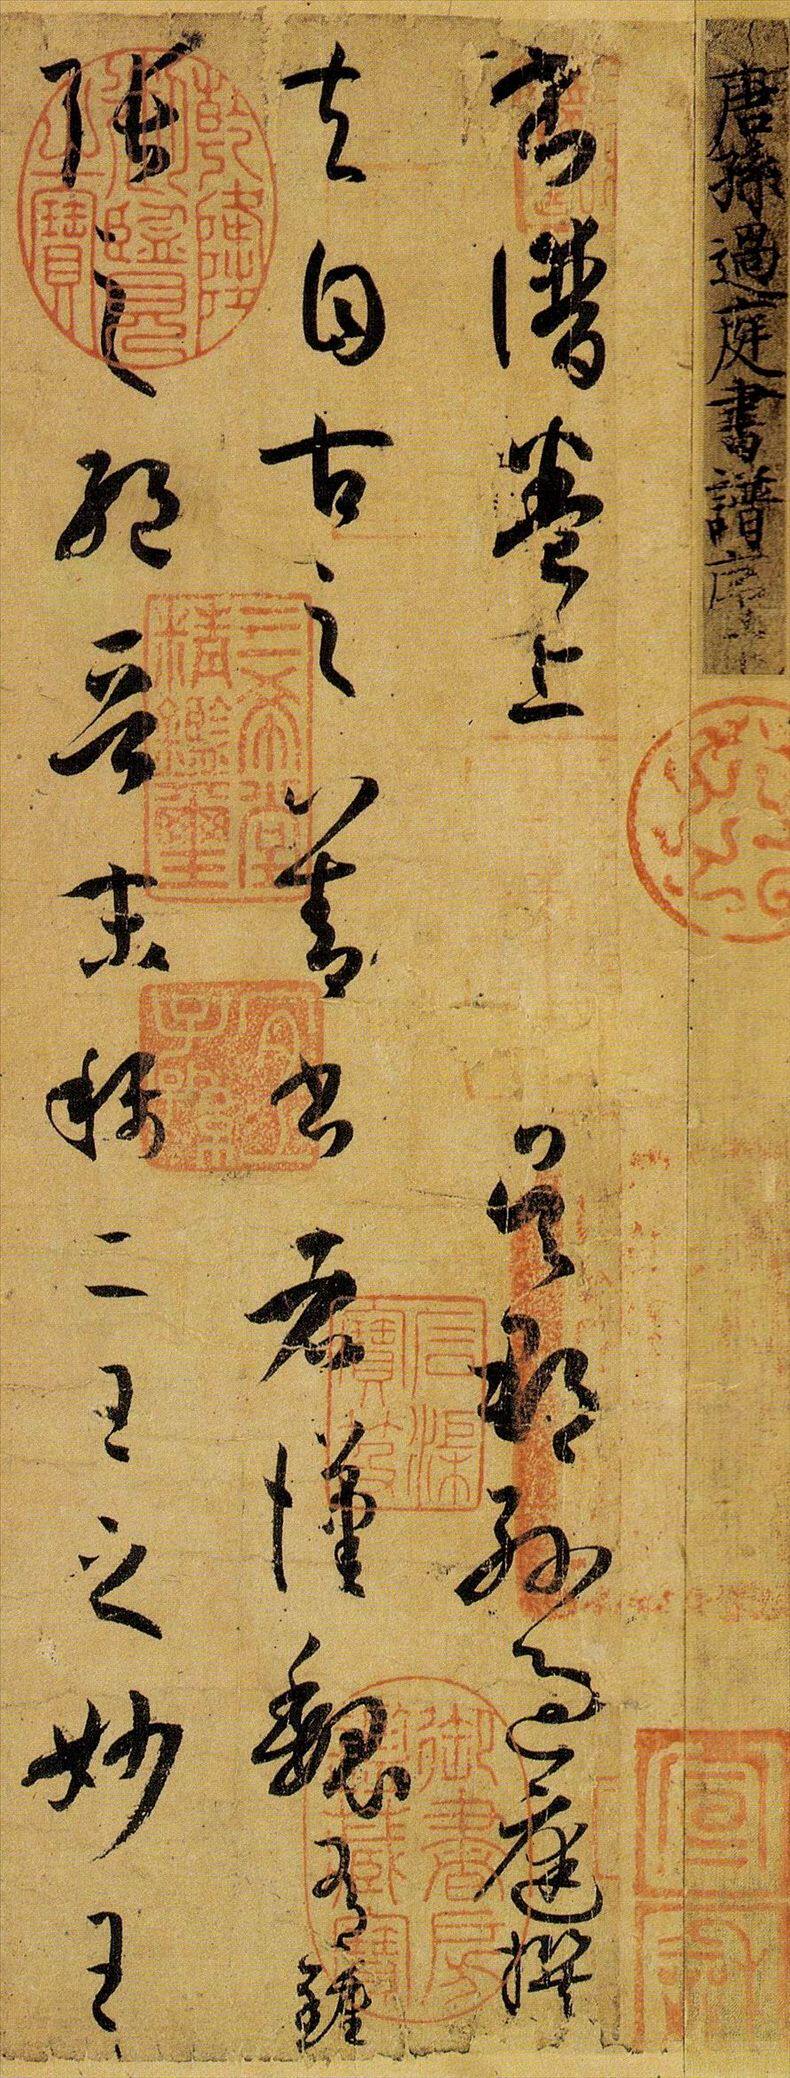 唐孫過庭書譜序
書譜卷上 吳郡孫過庭撰
夫自古之善書者漢魏有鍾
張之絕晉末稱二王之妙王
乾隆御覽之寶
三希堂精鑒璽
宜子孫
石渠寶笈
御書房鑒藏寶